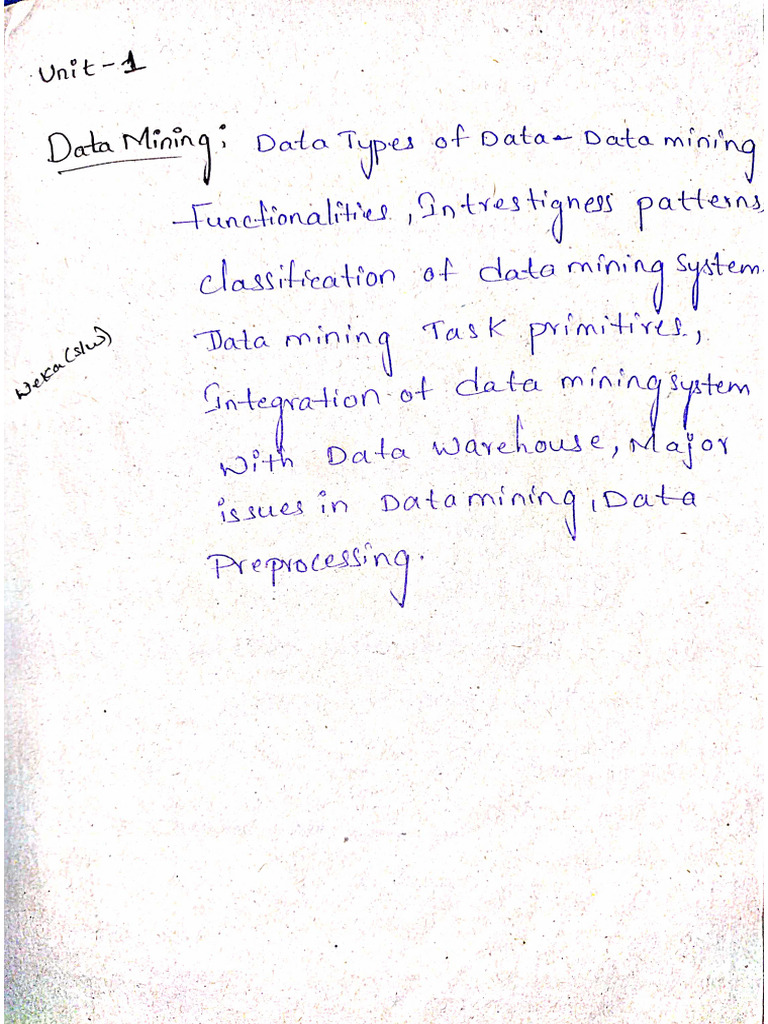 Unit-1
Data Mining: Data Types of Data - Data mining
Functionalities, Intrestigness patterns,
classification of data mining system.
Data mining Task primitires,
Weka(s/w)
Integration of data mining system
With Data Warehouse, Major
issues in Data mining, Data
Preprocessing.